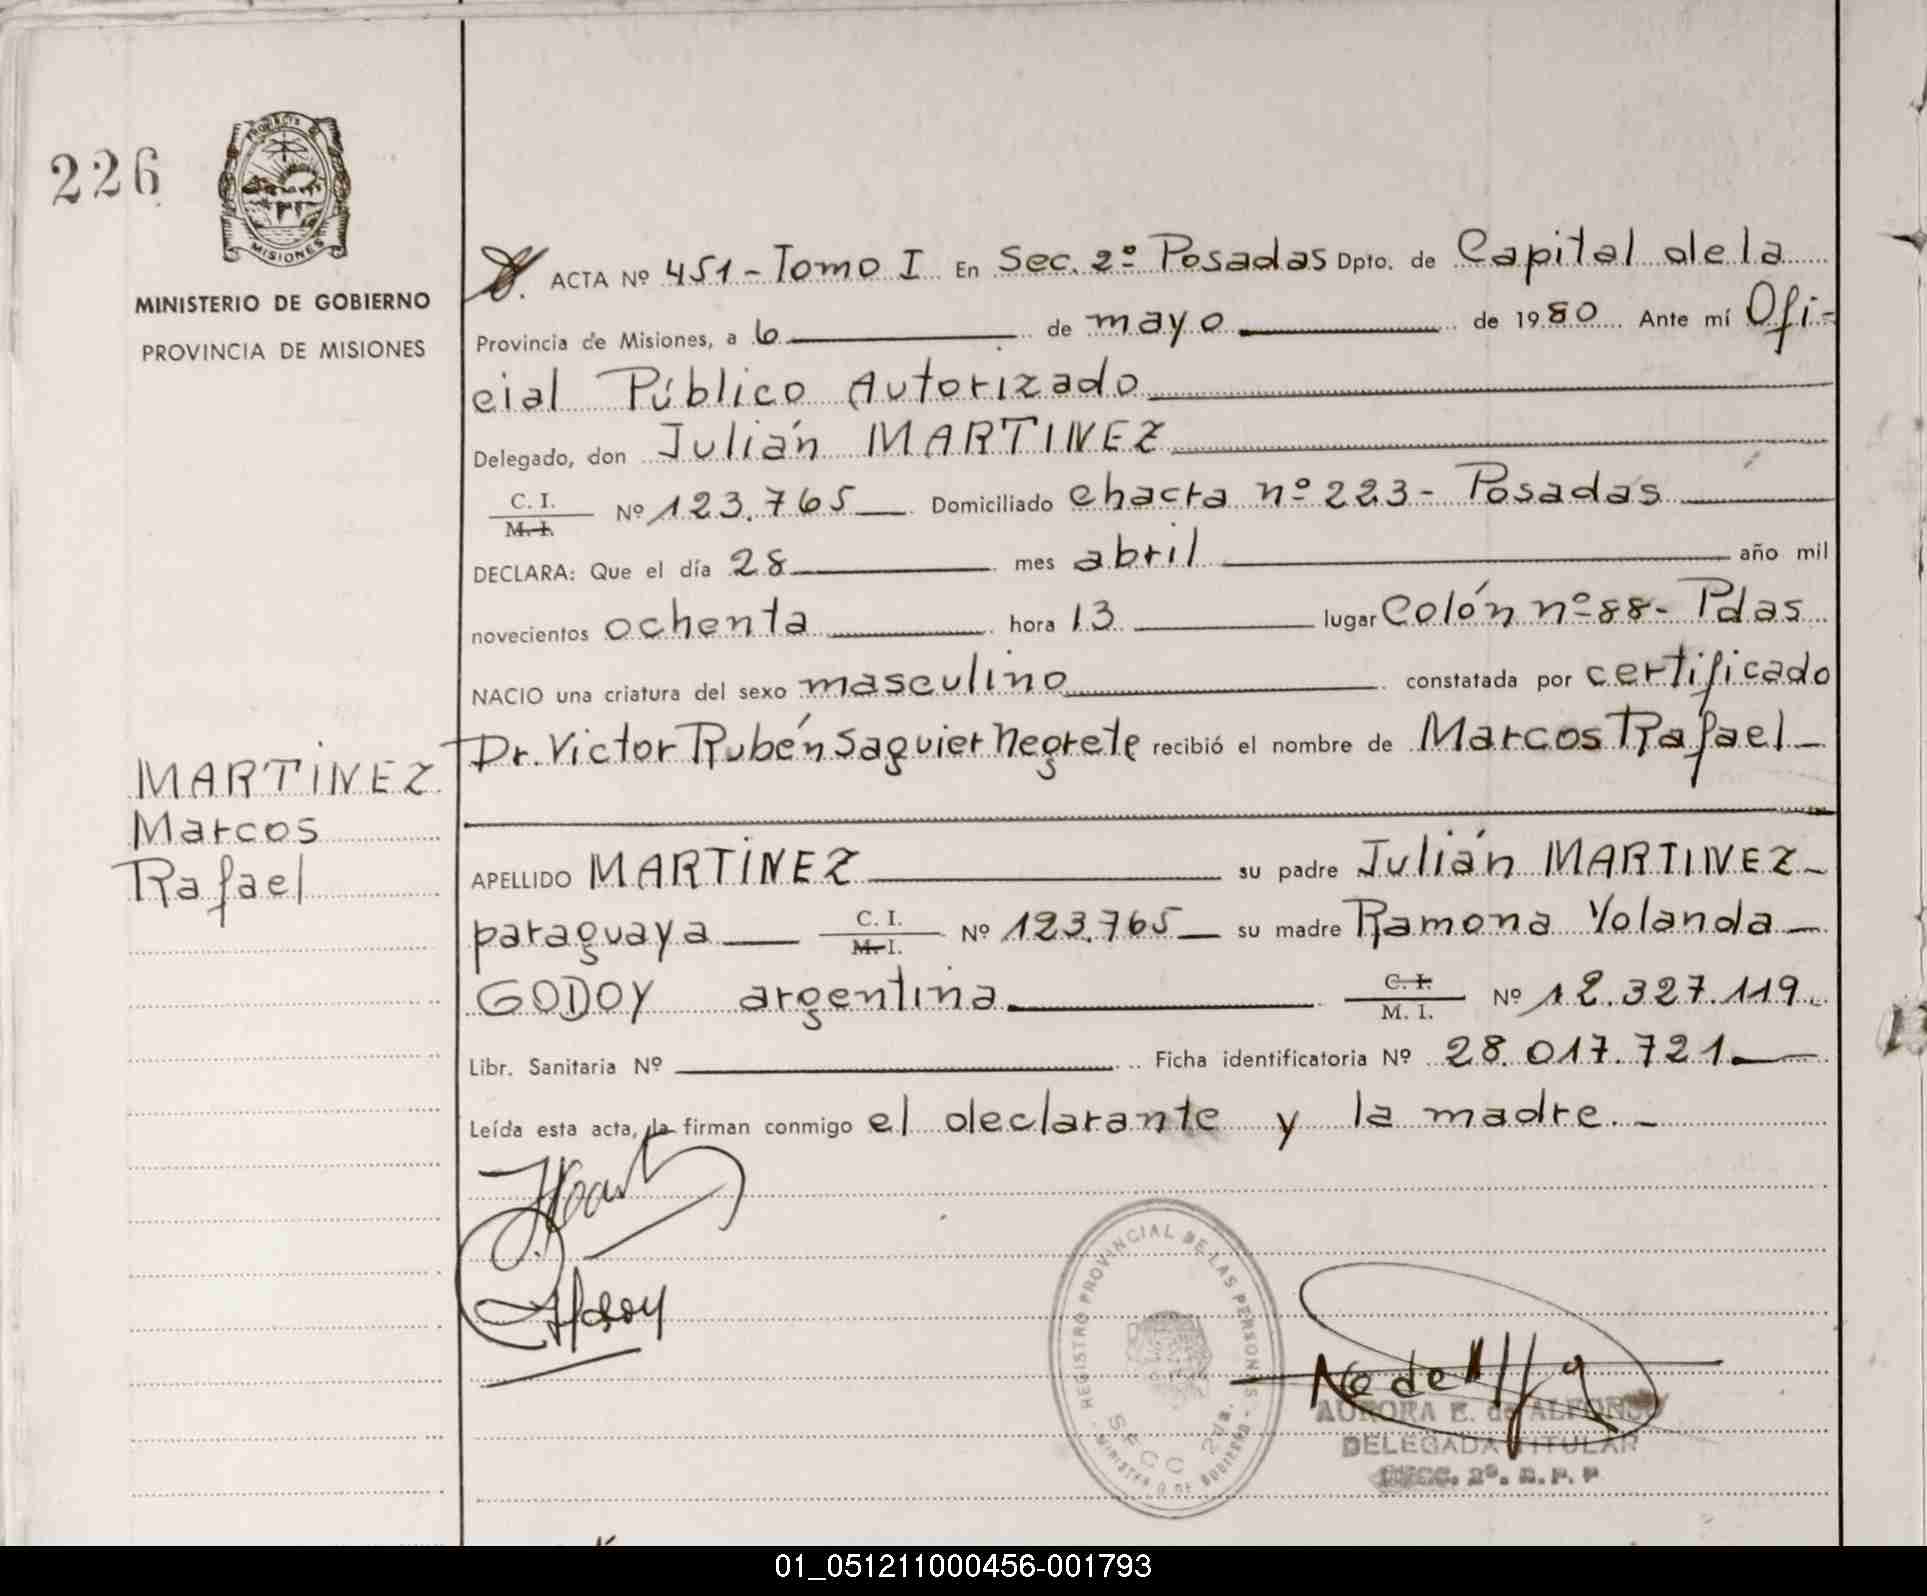 226
PROVINCIA D
MISIONES
MINISTERIO DE GOBIERNO
PROVINCIA DE MISIONES
ACTA Nº 451 - Tomo I En Sec. 2º Posadas Dpto. de Capital de la
Provincia de Misiones, a 6 de mayo de 1980 Ante mí Ofi-
cial Público Autorizado
Delegado, don Julián MARTINEZ
C. I.
M. I.
Nº 123.765 Domiciliado chacra nº 223 - Posadas
DECLARA: Que el día 28 mes abril año mil
novecientos ochenta hora 13 lugar Colón nº 88 - Pdas
NACIO una criatura del sexo masculino constatada por certificado
Dr. Victor Rubén Saguier Negrete recibió el nombre de Marcos Rafael
MARTINEZ
Marcos
Rafael
APELLIDO MARTINEZ su padre Julián MARTINEZ
paraguaya C. I. M. I. Nº 123.765 su madre Ramona Yolanda
GODOY argentina C. I. M. I. Nº 12.327.119
Libr. Sanitaria Nº Ficha identificatoria Nº 28.017.721
Leída esta acta, la firman conmigo el declarante y la madre.-
REGISTRO PROVINCIAL DE LAS PERSONAS
SECC 2da.
MINISTERIO DE GOBIERNO
AURORA E. de ALFONSO
DELEGADA TITULAR
SECC. 2º. R. P. P
01_051211000456-001793